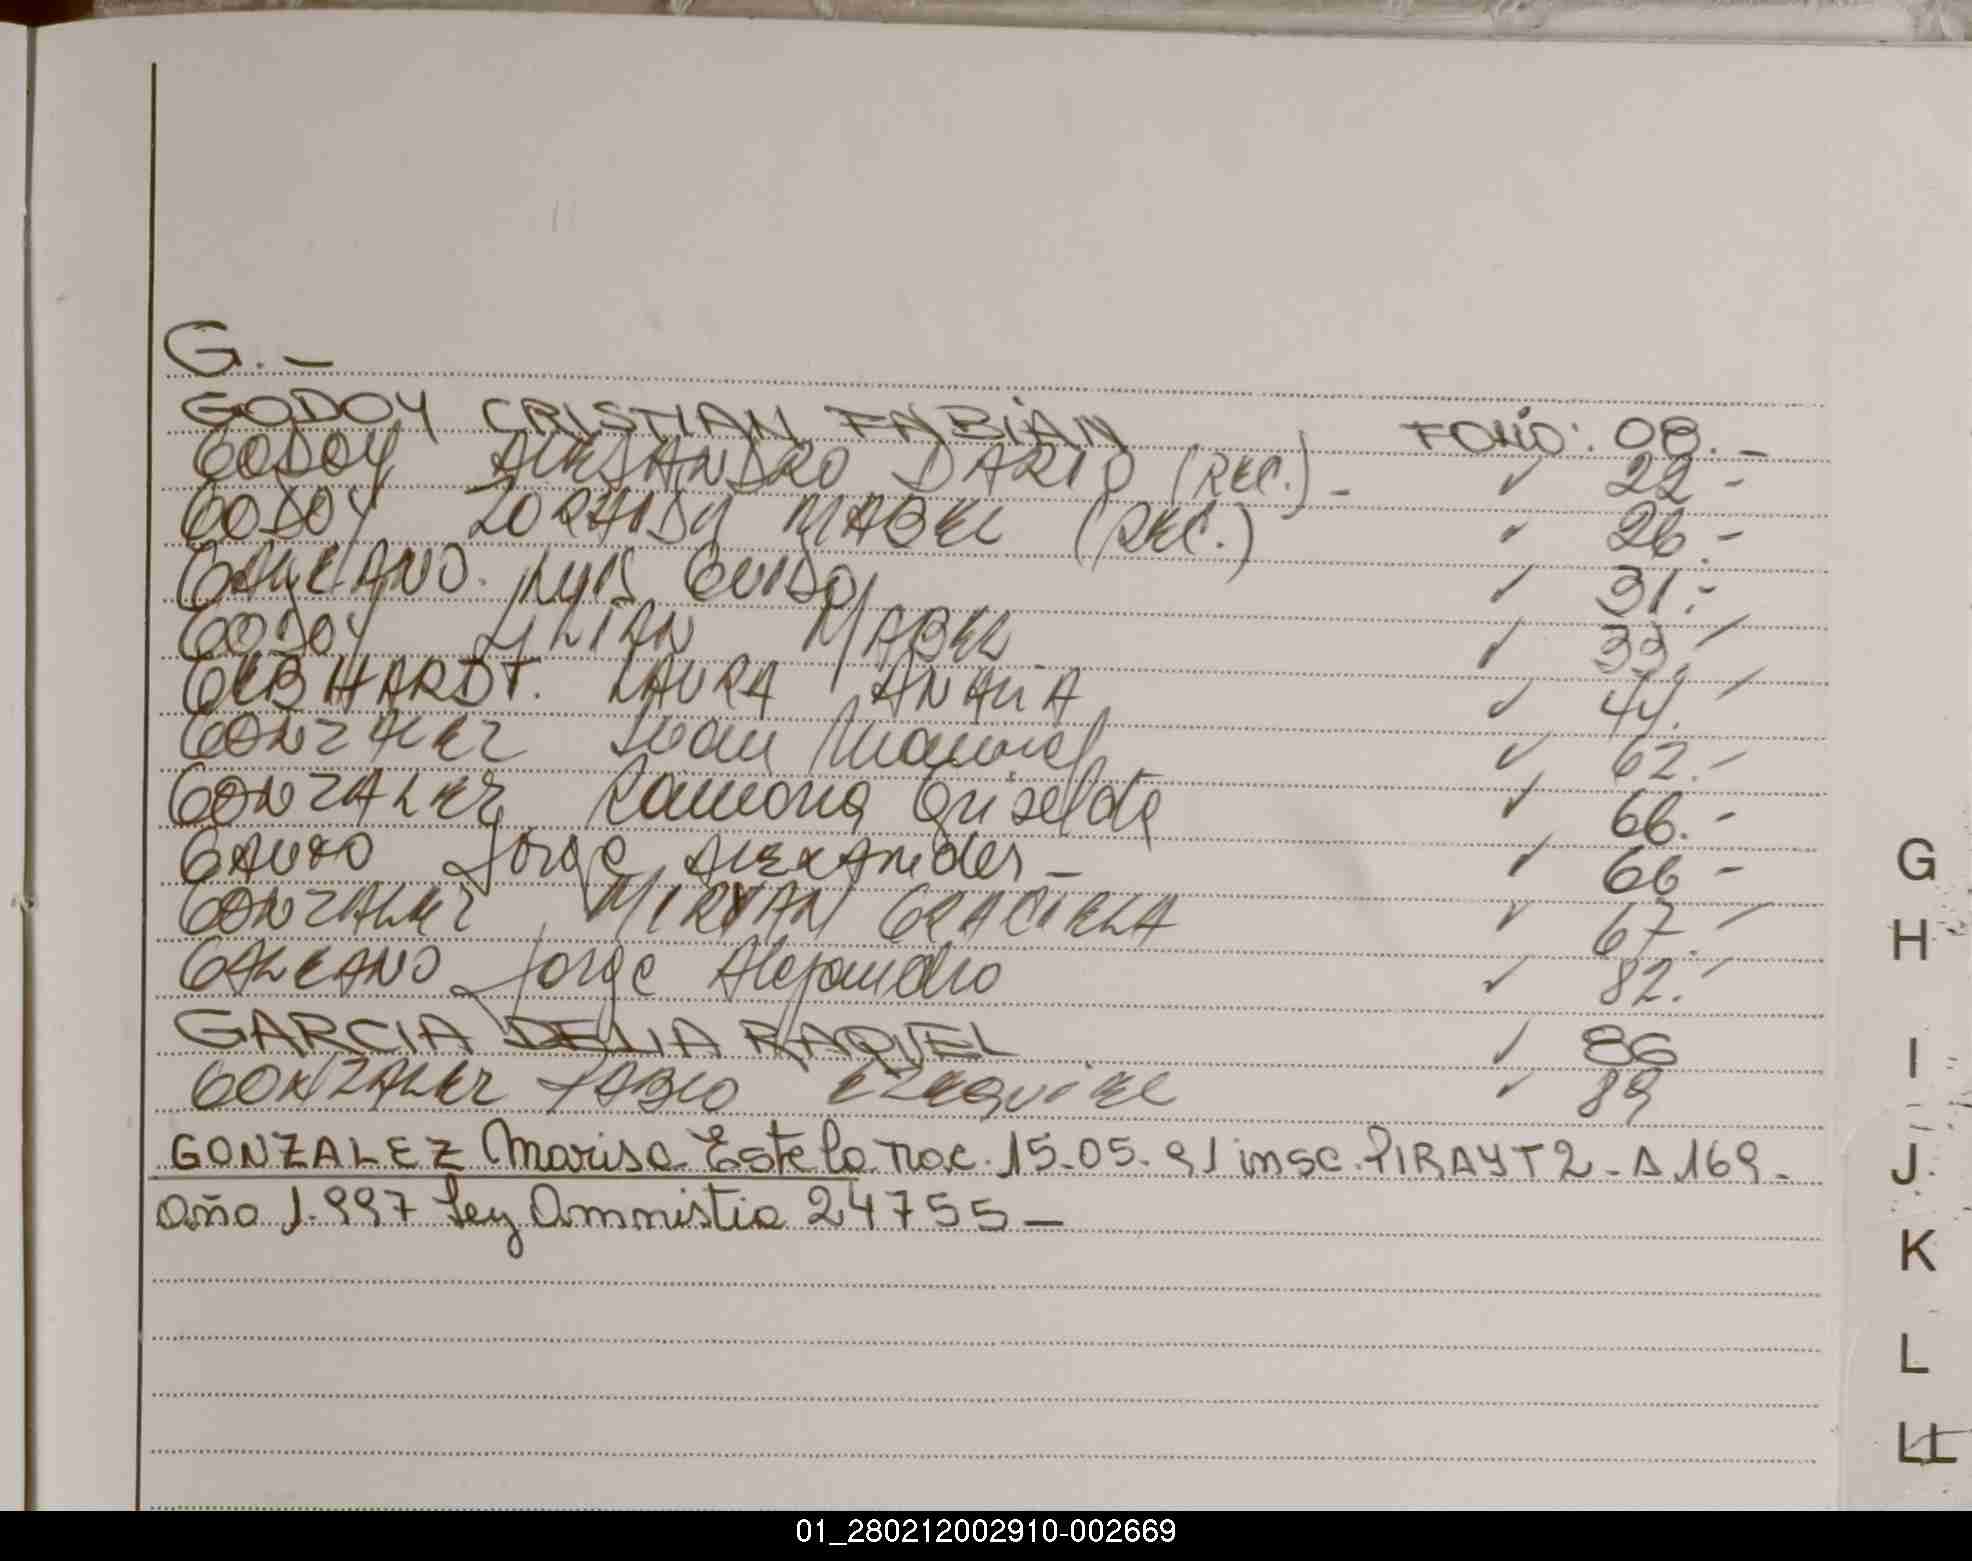 G.-
GODOY CRISTIAN FABIÁN FOLIO: 08.-
GODOY ALEJANDRO DARIO (REC.)- ✓ 22.-
GODOY ZORAIDA MABEL (REC.) ✓ 26.-
GALEANO. LUIS GUIDO ✓ 31.-
GODOY LILIAN MABEL ✓ 33.-
GEBHARDT. LAURA ANALIA ✓ 44.-
GONZALEZ Juan Manuel ✓ 62.-
GONZALEZ Ramona Griselda ✓ 66.-
Jorge ALEXANder- ✓ 66-
GONZALEZ MIRYAN GRACIELA ✓ 67.-
GALEANO Jorge Alejandro ✓ 82.-
GARCIA DELIA RAQUEL ✓ 86
GONZALEZ PABLO EZEQUIEL ✓ 89
GONZALEZ Marisa Estela nac. 15-05-91 insc. PIRAYT2-A 169-
año 1.997 Ley Amnistia 24755-
G
H
I
J
K
L
LL
01_280212002910-002669